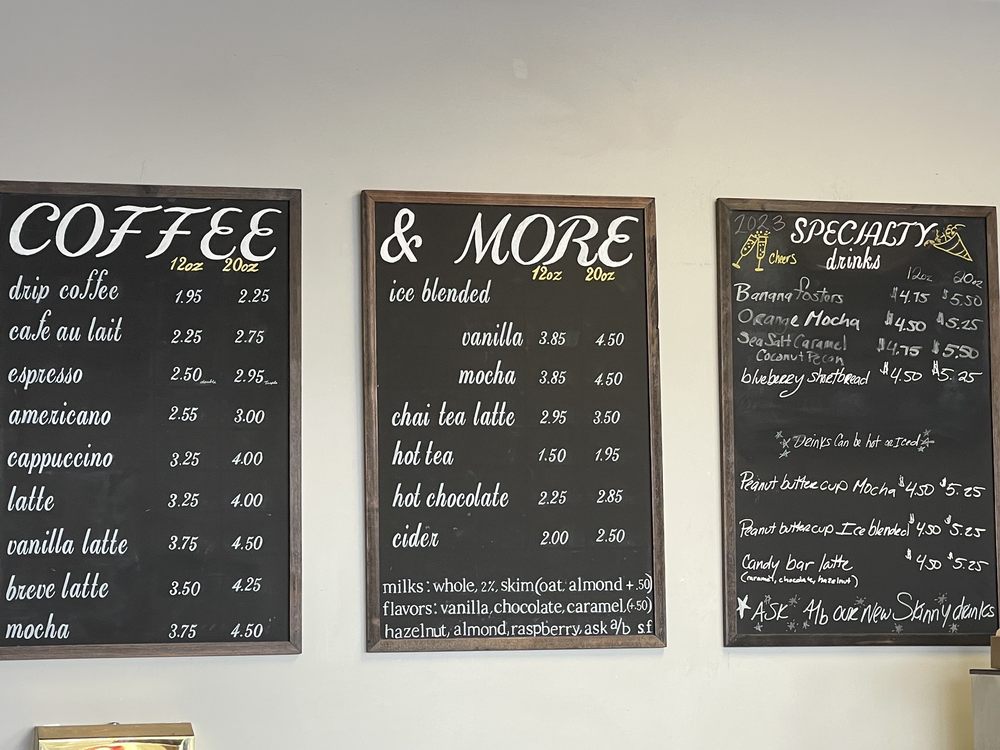 COFFEE
12oz 20oz
drip coffee 1.95 2.25
café au lait 2.25 2.75
espresso 2.50 double 2.95
americano 2.55 3.00
cappuccino 3.25 4.00
latte 3.25 4.00
vanilla latte 3.75 4.50
breve latte 3.50 4.25
mocha 3.75 4.50
& MORE
12oz 20oz
ice blended
vanilla 3.85 4.50
mocha 3.85 4.50
chai tea latte 2.95 3.50
hot tea 1.50 1.95
hot chocolate 2.25 2.85
cider 2.00 2.50
milks: whole, 2%, skim(oat, almond +.50)
flavors: vanilla, chocolate, caramel,(+.50)
hazelnut, almond, raspberry, ask a/b s.f
2023 SPECIALTY
cheers drinks
12oz 20oz
Banana fosters $4.75 $5.50
Orange Mocha $4.50 $5.25
Sea Salt Caramel $4.75 $5.50
Coconut Pecan
blueberry shortbread $4.50 $5.25
Drinks Can be hot or Iced
Peanut butter cup Mocha $4.50 $5.25
Peanut butter cup Ice blended $4.50 $5.25
Candy bar latte $4.50 $5.25
(caramel, chocolate, hazelnut)
ASK A/b our New Skinny drinks